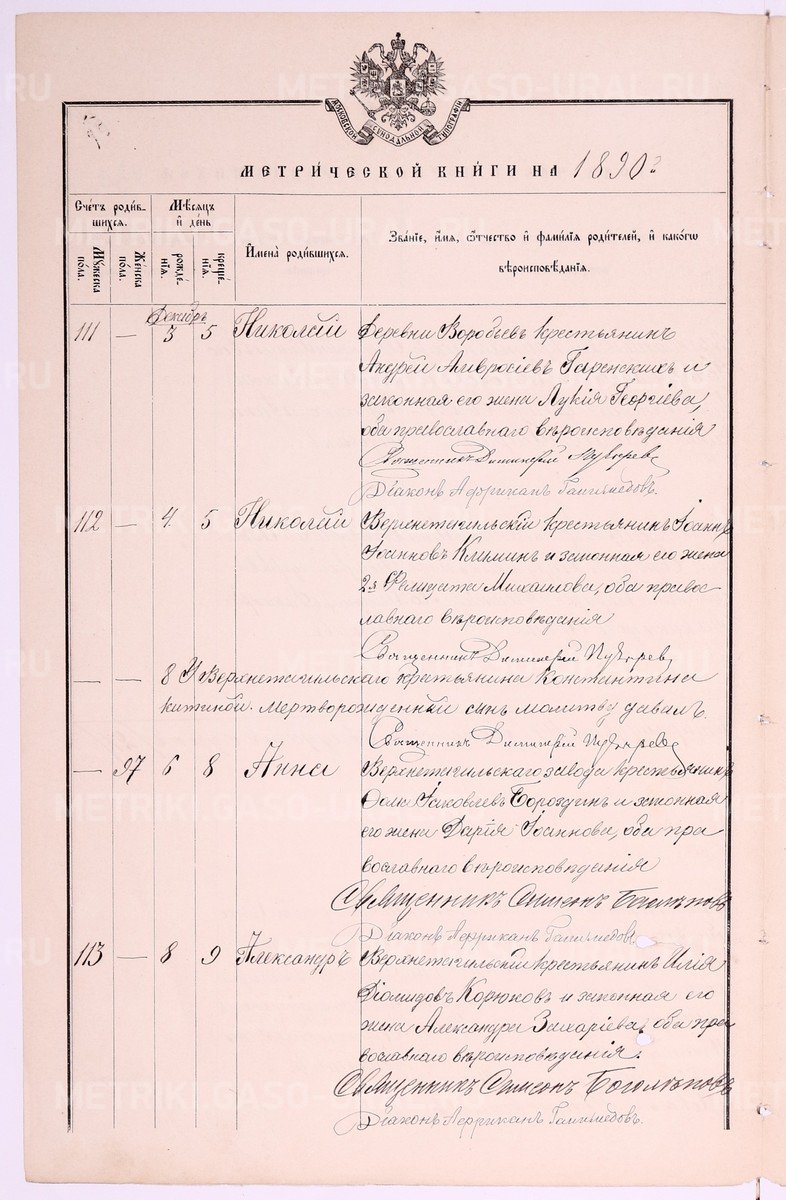 МОСКОВСКОЙ СѴНОДАЛЬНОЙ ТИПОГРАФІИ
МЕТРИ́ЧЕСКОЙ КНИ́ГИ НА 1890 г.
Сче́тъ роди́в-
шихся.
Мѣсяцъ
и́ де́нь
Му́жеска
по́ла.
Же́нска
по́ла.
рожде́-
нїѧ.
креще́-
нїѧ.
И́мена̀ роди́вшихся.
Зва́нїе, и́мѧ, ѻ́тчество и́ фами́лїѧ роди́телей, и́ како́гѡ
вѣроисповѣ́данїѧ.
Декабрь
111 — 3 5 Николай Деревни Воробьевъ крестьянинъ
Андрей Амвросіевъ Гаренскихъ и
законная его жена Лукія Георгіева,
оба православнаго вѣроисповѣданія
Священникъ Димитрій
Діаконъ Африканъ
112 — 4. 5 Николай Верхнетагильскій крестьянинъ Іоаннъ
Іоанновъ Климинъ и законная его жена
2я Фелицата Михаилова, оба право-
славнаго вѣроисповѣданія
Священникъ Димитрій
— — 8 У Верхнетагильскаго крестьянина Константина
Китиной. мертворожденный сынъ молитву давалъ.
Священникъ Димитрій
— 97 6 8 Анна Верхнетагильскаго завода крестьянинъ
Іаковлевъ Бороздинъ и законная
его жена Дарія Іоаннова, оба пра
вославнаго вѣроисповѣданія
Священникъ Симеонъ Боголѣповъ
Діаконъ Африканъ
113 — 8 9 Александръ Верхнетагильскій крестьянинъ Илія
Діомидовъ Корюковъ и законная его
жена Александра Захаріева, оба пра
вославнаго вѣроисповѣданія.
Священникъ Симеонъ Боголѣповъ
Діаконъ Африканъ